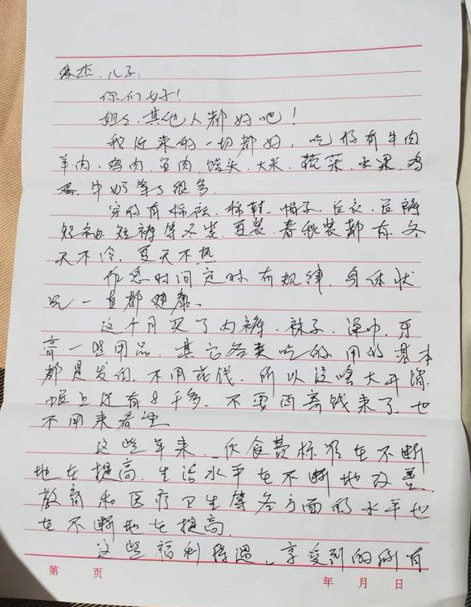 儿子.
你们好!
姐、其他人都好吧!
我近来的一切都好, 吃好有牛肉
羊肉、鸡肉、鱼肉、馒头、大米、蔬菜、水果、鸡
蛋、牛奶等等很多.
穿的有棉袄、棉鞋、帽子、
短袖、短裤等冬装夏装、春秋装都有, 冬
天不冷, 夏天不热
作息时间定时有规律, 身体状
况一直都健康。
这个月买了内裤、袜子、澡巾、牙
膏一些用品, 其它各类吃的用的基本
都是发的, 不用花钱. 所以没啥大开销
账上还有8千多. 不要再寄钱来了, 也
不用来看望
这些年来, 伙食费标准在不断
地在提高, 生活水平在不断地改善,
教育和医疗卫生等各方面的水平也
在不断地在提高.
这些福利待遇, 享受到的所有
第 页
年 月 日